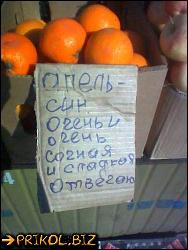 Опель-
син
очень и
очень
сочная
и сладкая
Отвечаю
PRIKOL.BIZ